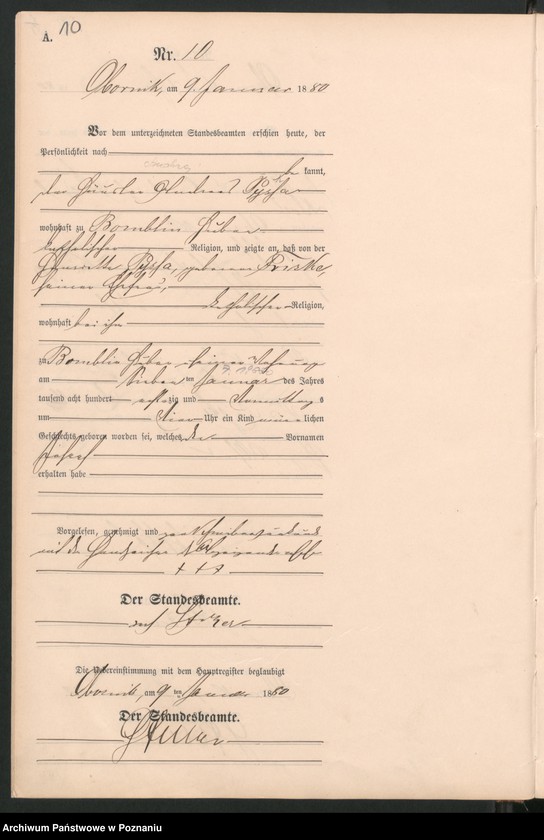 A. 10
Nr. 10
Obornik, am 9. Januar 1880
Vor dem unterzeichneten Standesbeamten erschien heute, der
Persönlichkeit nach
be kannt,
der Häusler Andreas
wohnhaft zu Bomblin Huben
katholischer Religion, und zeigte an, daß von der
Henriette geborenen Friske
seiner Ehefrau,
katholischer Religion,
wohnhaft bei ihm
zu Bomblin Huben in seiner Wohnung
7. 1. 1880
am sieben ten Januar des Jahres
tausend acht hundert achtzig und Vormittags
um vier Uhr ein Kind männ lichen
Geschlechts geboren worden sei, welches den Vornamen
Joseph
erhalten habe
Vorgelesen, genehmigt und
mit den Handzeichen
+ + +
Der Standesbeamte.
Die Uebereinstimmung mit dem Hauptregister beglaubigt
Obornik, am 9 ten Januar 1880
Der Standesbeamte.
Archiwum Państwowe w Poznaniu